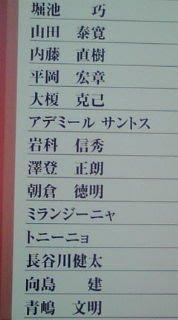 堀池　巧
山田　泰寛
内藤　直樹
平岡　宏章
大榎　克己
アデミール サントス
岩科　信秀
澤登　正朗
朝倉　徳明
ミランジーニャ
トニーニョ
長谷川健太
向島　建
青嶋　文明